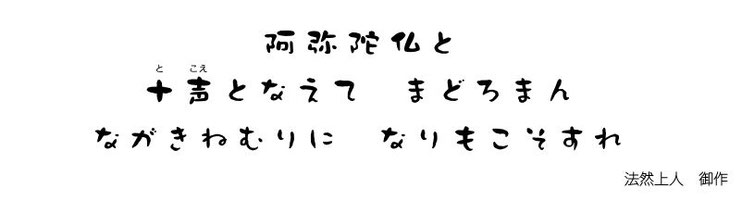 阿弥陀仏と
と こえ
十声となえて　まどろまん
ながきねむりに　なりもこそすれ
法然上人　御作